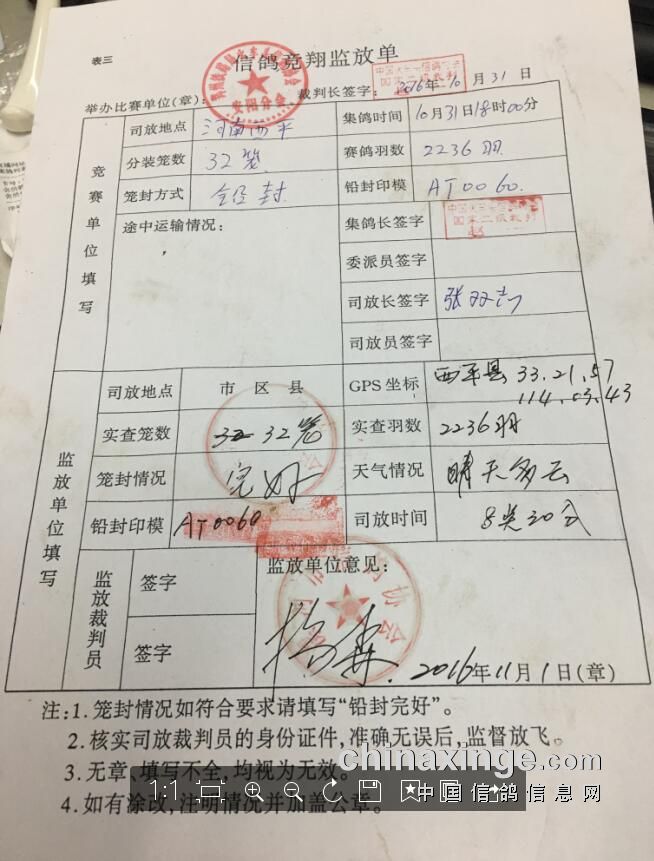 表三
信鸽竞翔监放单
举办比赛单位(章): 裁判长签字: 2016年10月31日
安阳分会
国家二级裁判
竞赛单位填写
司放地点 河南西平 集鸽时间 10月31日18时00分
分装笼数 32笼 赛鸽羽数 2236羽
笼封方式 铅封 铅封印模 AT0060.
途中运输情况: 集鸽长签字
国家二级裁判
委派员签字
司放长签字
司放员签字
监放单位填写
司放地点 市区县 GPS坐标 西平县 33.21.57
114.03.43
实查笼数 32 32笼 实查羽数 2236羽
笼封情况 完好 天气情况 晴天多云
铅封印模 AT0060 司放时间 8点30分
监放裁判员 签字
签字
监放单位意见:
2016年11月1日(章)
注:1.笼封情况如符合要求请填写“铅封完好”。
2.核实司放裁判员的身份证件,准确无误后,监督放飞。
3.无章、填写不全,均视为无效。
4.如有涂改,注明情况并加盖公章。
1:1
chinaxinge.com
中国信鸽信息网